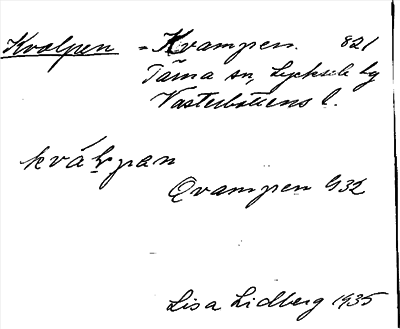 Kvalpen = Kvampen. 821
Tärna sn, Lycksele lg
Västerbottens l.
kválpan
Qvampen G32
Lisa Lidberg 1935